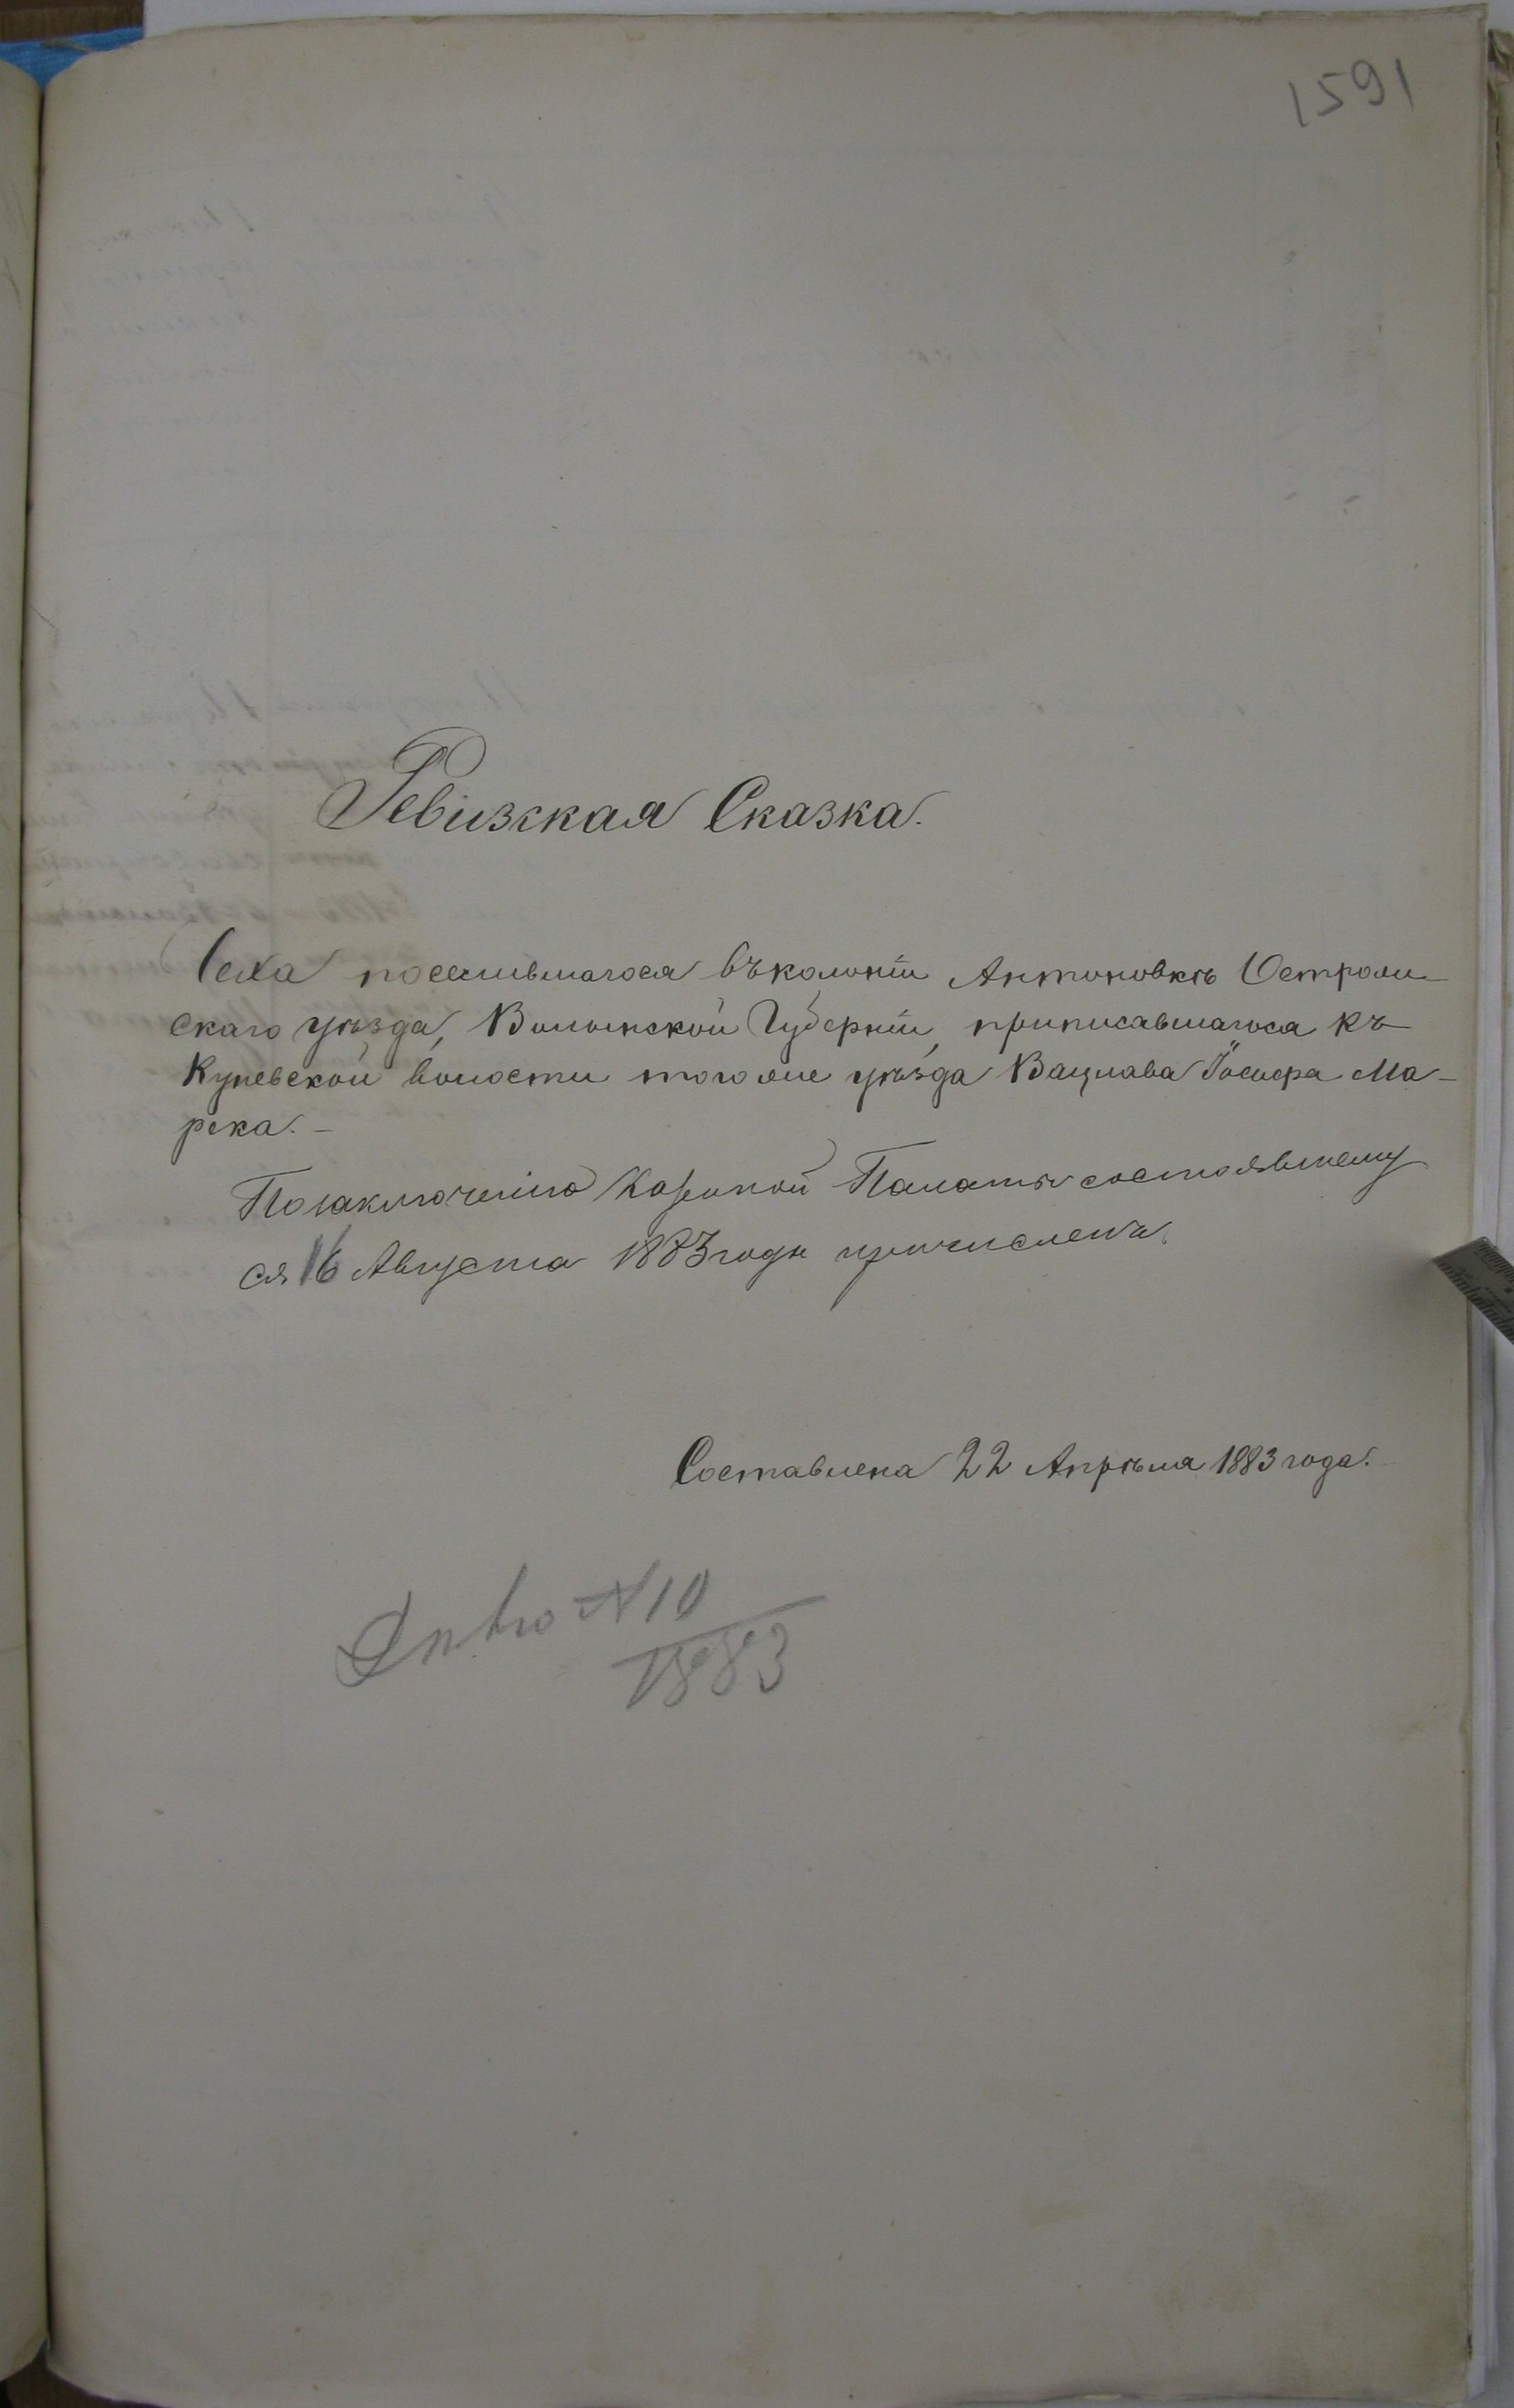 1591
Ревизская Сказка.
Чеха поселившагося въ колоніи Антоновкѣ Острож-
скаго уѣзда, Волынской Губерніи, приписавшагося къ
Куневской волости того же уѣзда Вацлава Іосифа Ма-
река.–
По заключенію Казенной Палаты состоявшему
ся 16 Августа 1883 года причисленъ.
Составлена 22 Апрѣля 1883 года.
Дѣло №10
1883